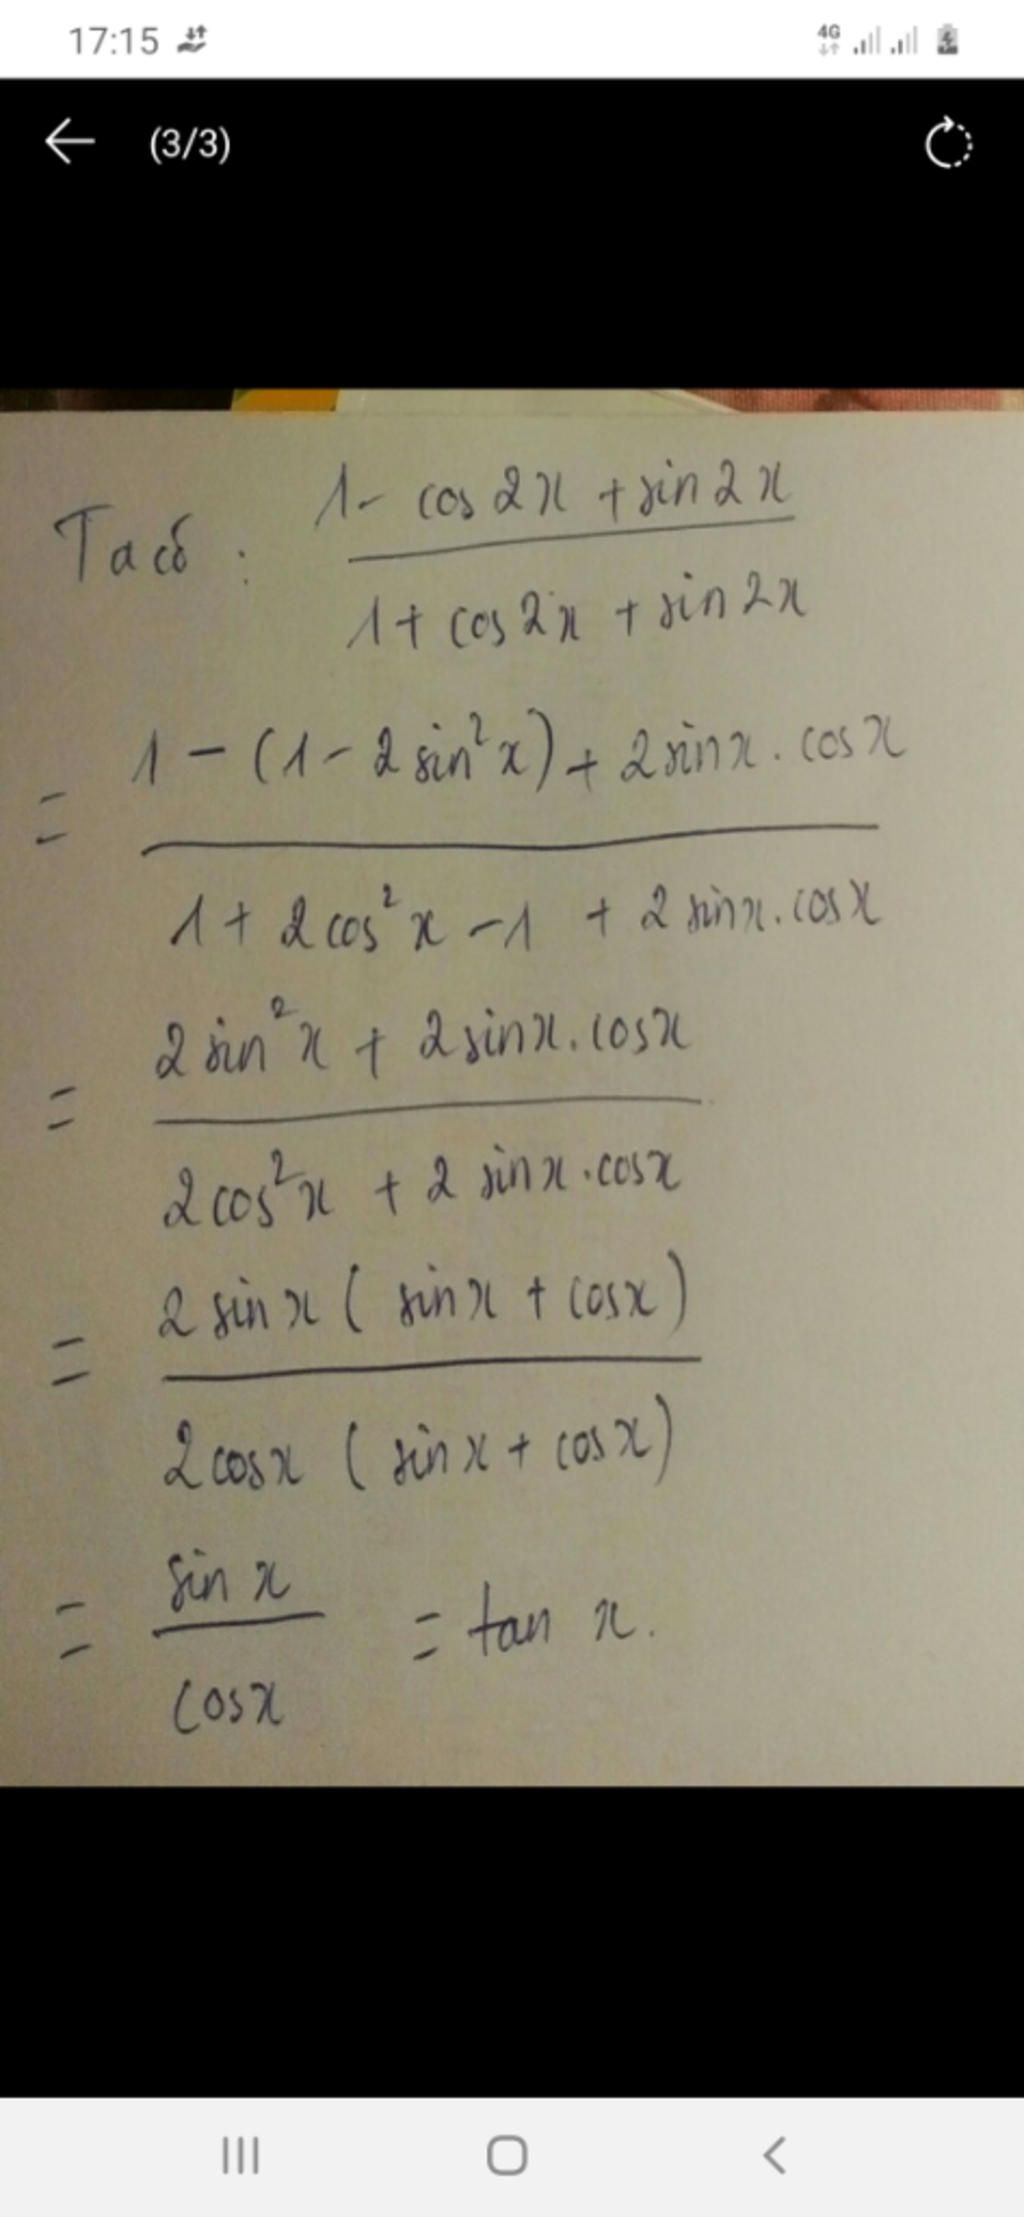 17:15 4G
(3/3)
Ta có : 1- cos 2x + sin 2x
1 + cos 2x + sin 2x
= 1 - (1 - 2 sin² x) + 2 sin x . cos x
1 + 2 cos² x - 1 + 2 sin x . cos x
= 2 sin² x + 2 sin x . cos x
2 cos² x + 2 sin x . cos x
= 2 sin x ( sin x + cos x )
2 cos x ( sin x + cos x )
= sin x
cos x
= tan x .